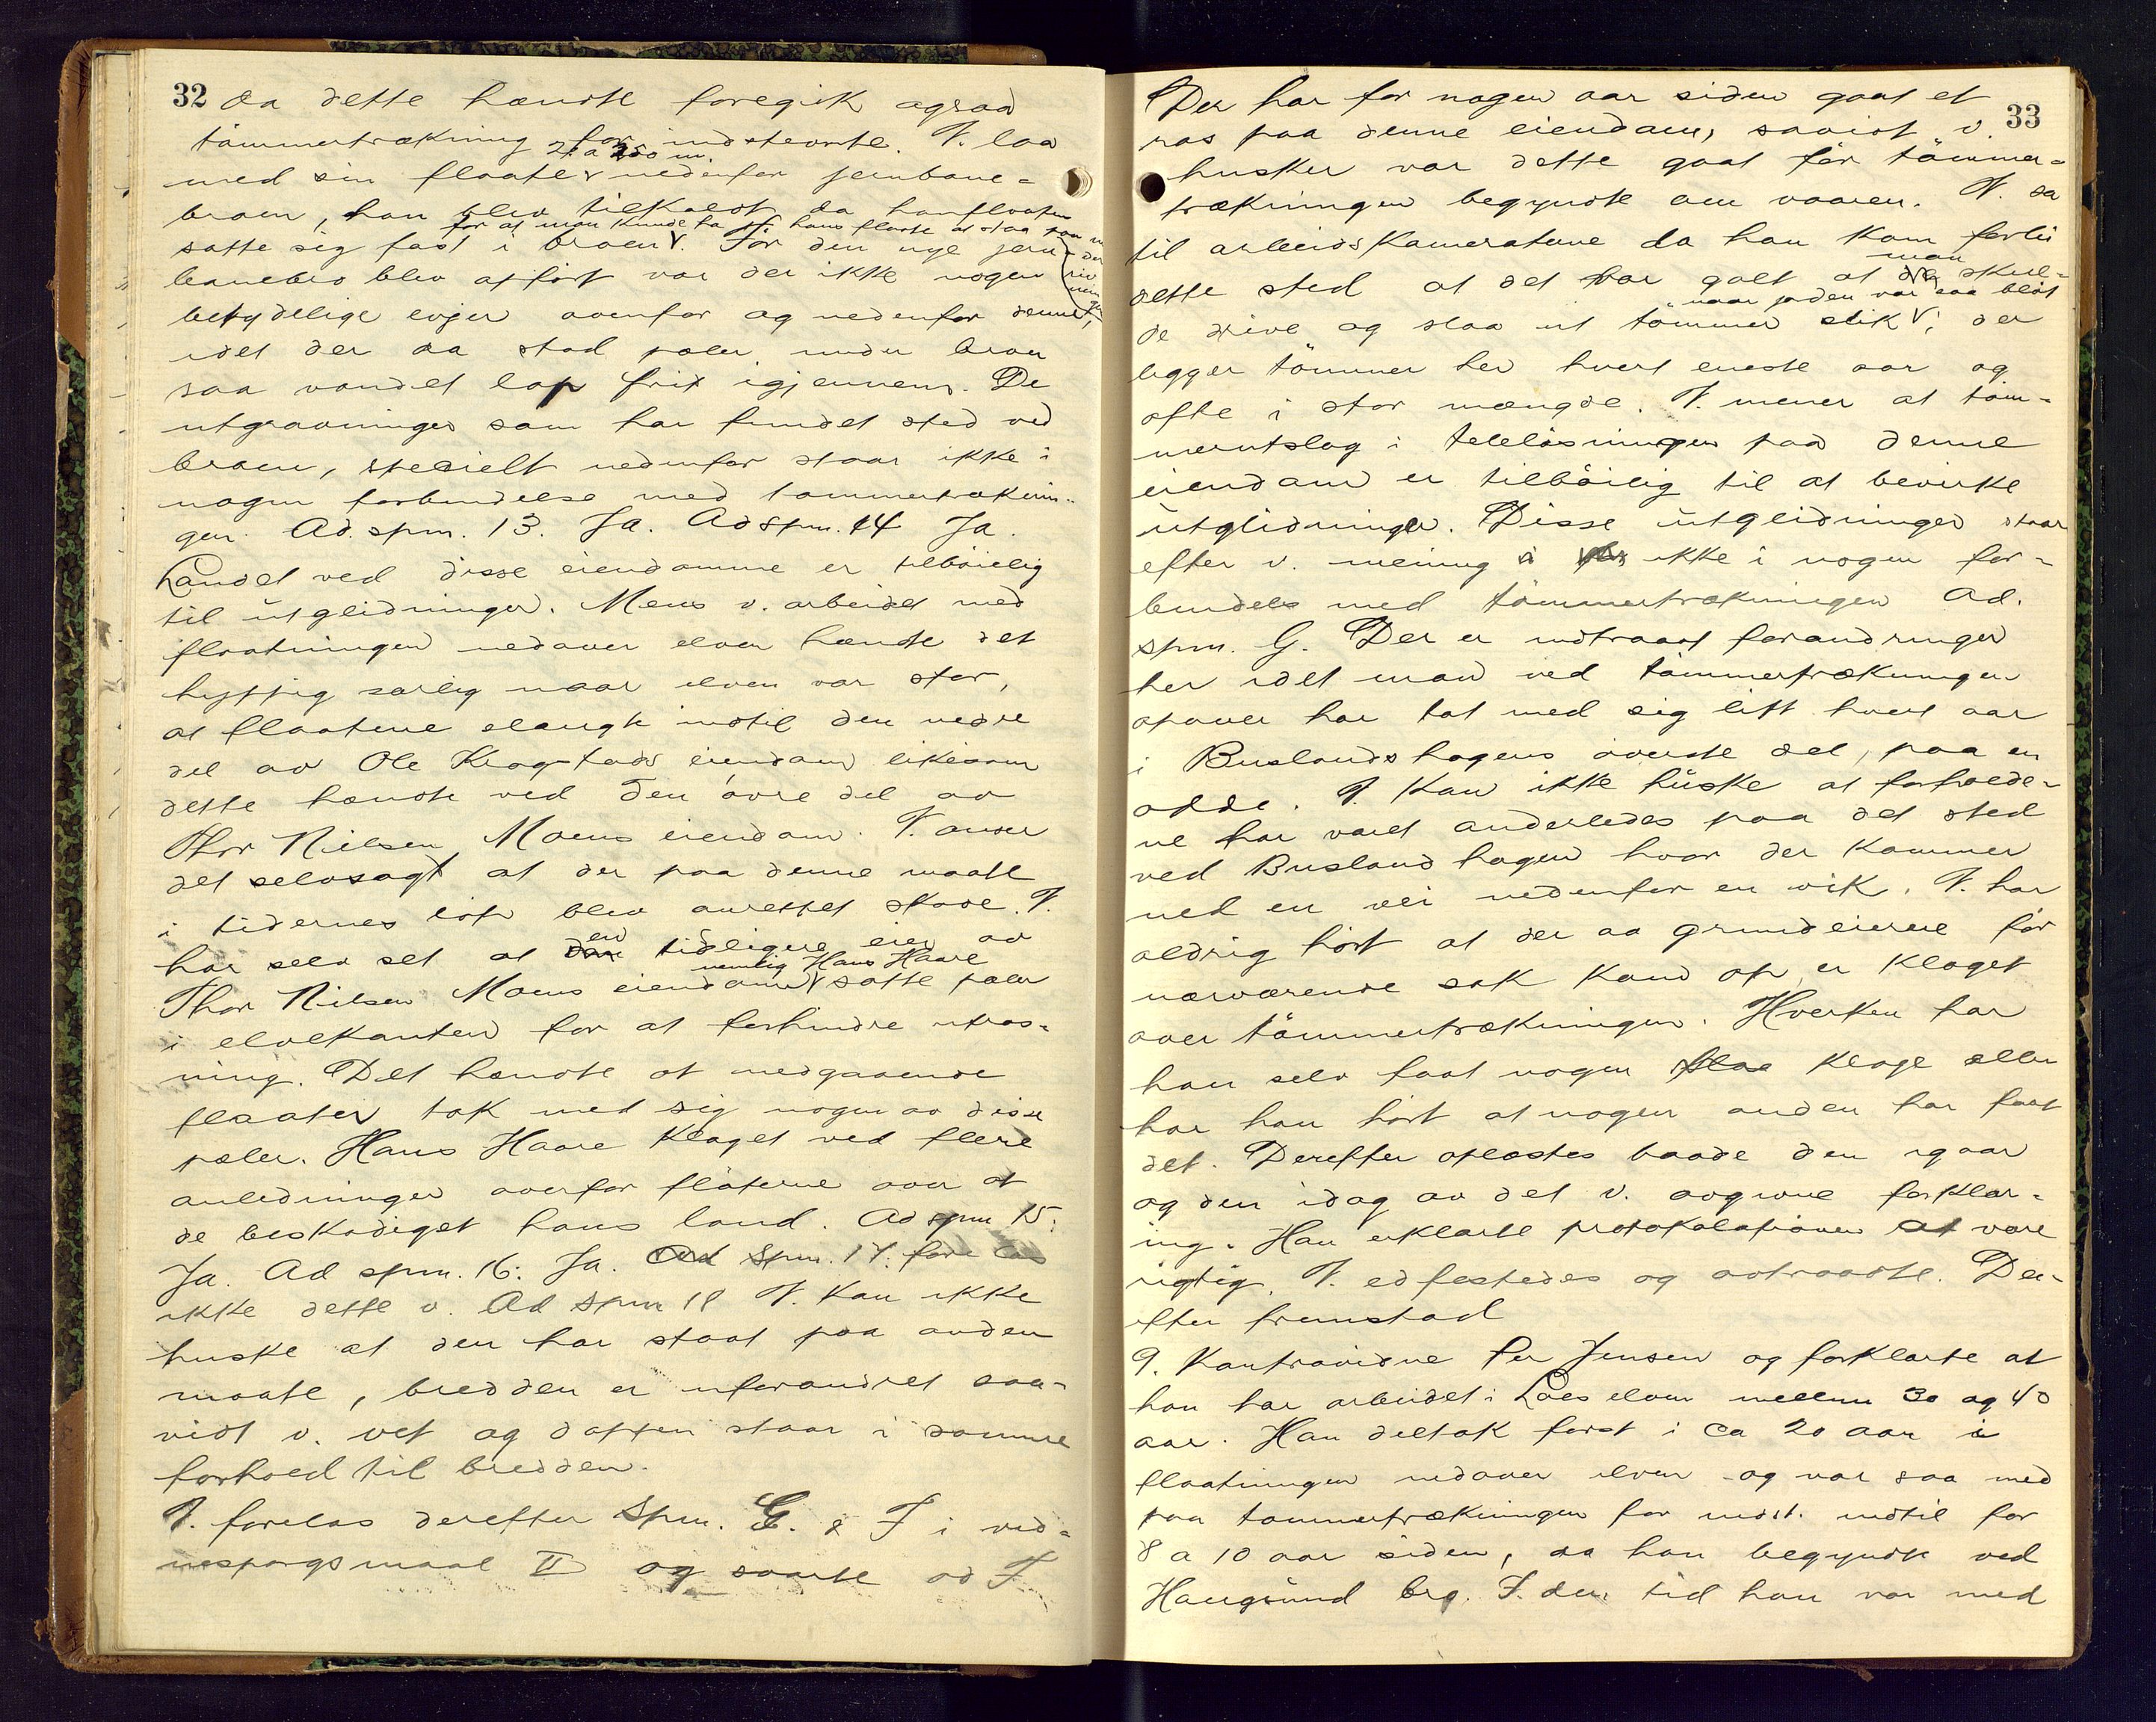 32
da dette hændte foregik ogsaa
tømmertrækning for indstevnte. V. laa
2 a 250 m.
med sin flaate v nedenfor jernbane-
broen, han blev tilkaldt da han flaaten
for at man kunde ta hans flaate
satte sig fast i broen V. Før den nye jern-
banebro blev opført var der ikke nogen
betydelige evjer ovenfor og nedenfor denne,
idet der da stod pæler under broen
saa vandet løp frit igjennem. De
utgravninger som har fundet sted ved
broen, specielt nedenfor staar ikke i
nogen forbindelse med tømmertræknin-
gen. Ad. spm. 13. Ja. Ad spm. 14 Ja.
Landet ved disse eiendomme er tilbøielig
til utglidninger. Mens v. arbeidet med
flaatningen nedover elven hændte det
hyppig særlig naar elven var stor,
at flaatene slængte indtil den nedre
del av Ole Krogstads eiendom likesom
dette hændte ved den øvre del av
Thor Nielsen Moens eiendom. V. anser
det selvsagt at der paa denne maate
i tidernes løp blev anrettet skade. V.
en
har selv set at den tidligere eier av
nemlig Hans Haare
Thor Nilsen Moens eiendom V satte pæler
i elvekanten for at forhindre utras-
ning. Det hændte at nedgaaende
flaater tok med sig nogen av disse
pæler. Hans Haare klaget ved flere
anledninger overfor fløterne over at
de beskadiget hans land. Ad spm 15:
Ja. Ad spm. 16: Ja. Ad spm. 17.
ikke dette v. Ad spm 18 V. kan ikke
huske at den har staat paa anden
maate, bredden er uforandret saa-
vidt v. vet og daffen staar i samme
forhold til bredden.
V. forelæs derefter spm. G. & F i vid-
nespørgsmaal II og svarte ad F
33
Der har for nogen aar siden gaat et
ras paa denne eiendom, saavidt v.
husker var dette gaat før tømmer-
trækningen begyndte om vaaren. V. sa
til arbeidskameratene da han kom forbi
man
dette sted at det var galt at de skul-
naar jorden var saa bløt
de drive og slaa ut tømmer slik V; der
ligger tømmer her hvert eneste aar og
ofte i stor mængde. V. mener at tøm-
merutslag i teleløsningen paa denne
eiendom er tilbøilig til at bevirke
utglidninger. Disse utglidninger staar
efter v. mening ikke i nogen for-
bindels med tømmertrækningen Ad.
spm. G. Der er indtraadt forandringer
her idet man ved tømmertrækningen
opover har tat med sig litt hvert aar
i Buslandshagens øverste del, paa en
odde. V. kan ikke huske at forholde-
ne har været anderledes paa det sted
ved Buslandhagen hvor der kommer
ned en vei nedenfor en vik. V. har
aldrig hørt at der av grundeierne før
nærværende sak kom op er klaget
over tømmertrækningen. Hverken har
han selv faat nogen klage eller
har han hørt at nogen anden har faat
det. Derefter oplæstes baade den igaar
og den idag av det v. avgivne forklar-
ing. Han erklærte protokolationen at være
rigtig. V. edfestedes og avtraadte. Der-
efter fremstod
9. Kontravidne Per Jensen og forklarte at
han har arbeidet i Loeselven mellem 30 og 40
aar. Han deltok først i ca 20 aar i
flaatningen nedover elven og var saa med
paa tømmertrækningen for indst. indtil for
8 a 10 aar siden, da han begyndte ved
Haugsund brg. I den tid han var med